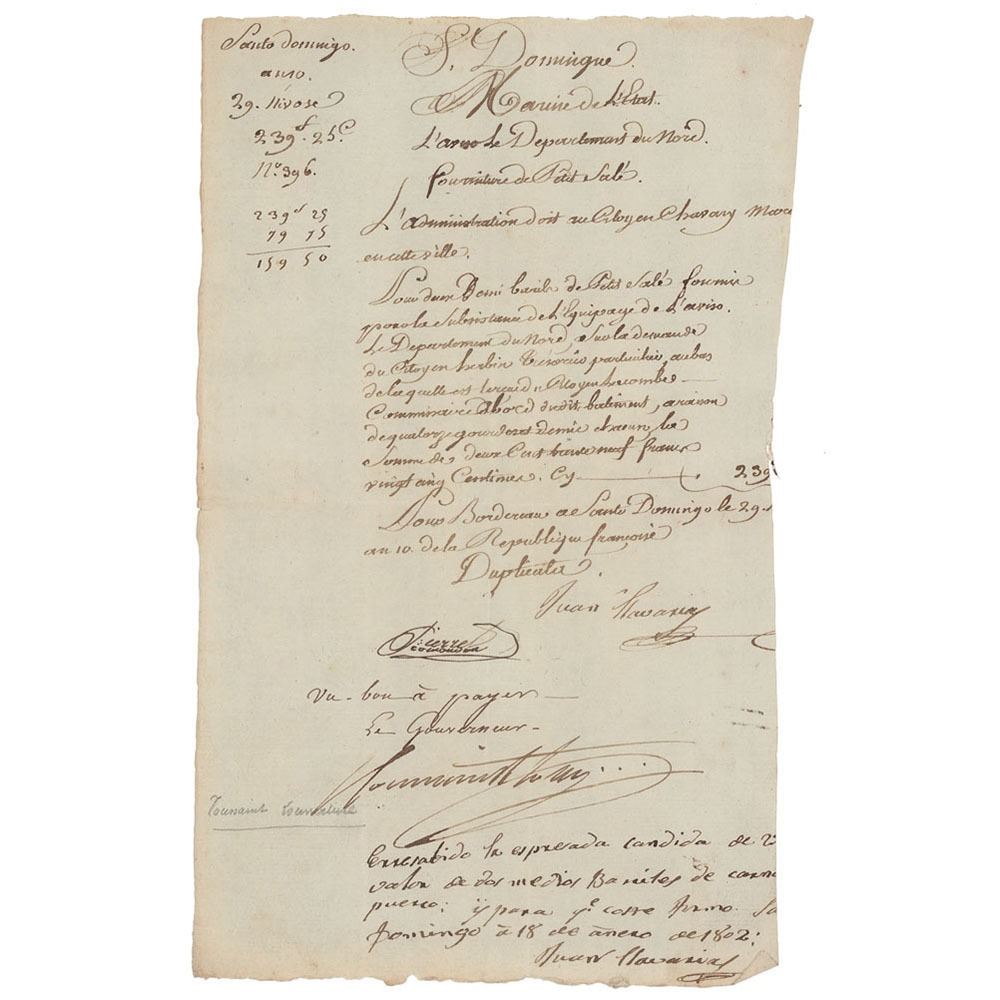 Santo domingo.
an 10.
29. Nivose
239f. 25c.
No. 396.
239f 25
79 75
159 50
St. Domingue.
Marine de L'Etat.
L'aviso Le Departement du Nord.
fourniture de Petit Salé.
L'administration doit au Citoyen Chavany Marc
en cette ville.
Pour deux Demi barils de Petit Salé fournis
pour la Subsistance de L'Equipage de L'aviso.
Le Departement du Nord, sur la demande
du Citoyen herbin Trésorier particulier, au bas
de laquelle est le reçu du Citoyen Lecombe
Commissaire à bord dudit batiment, a raison
de quatorze gourdes et demie chacun, la
Somme de deux Cent trente neuf francs
vingt cinq Centimes. Cy 239
Pour Bordereau a Santo Domingo le 29.
an 10. de la Republique françoise
Duplicata.
Juan Llavaria
Pierre
Vu bon à payer
Le Gouverneur
Toussaint Louverture
Toussaint Louverture
Erresibido la espresada candida de
valor de dos medios Barriles de carne
puerco; y para qe. coste firmo
Domingo à 18 de ánero de 1802:
Juan Llavaria